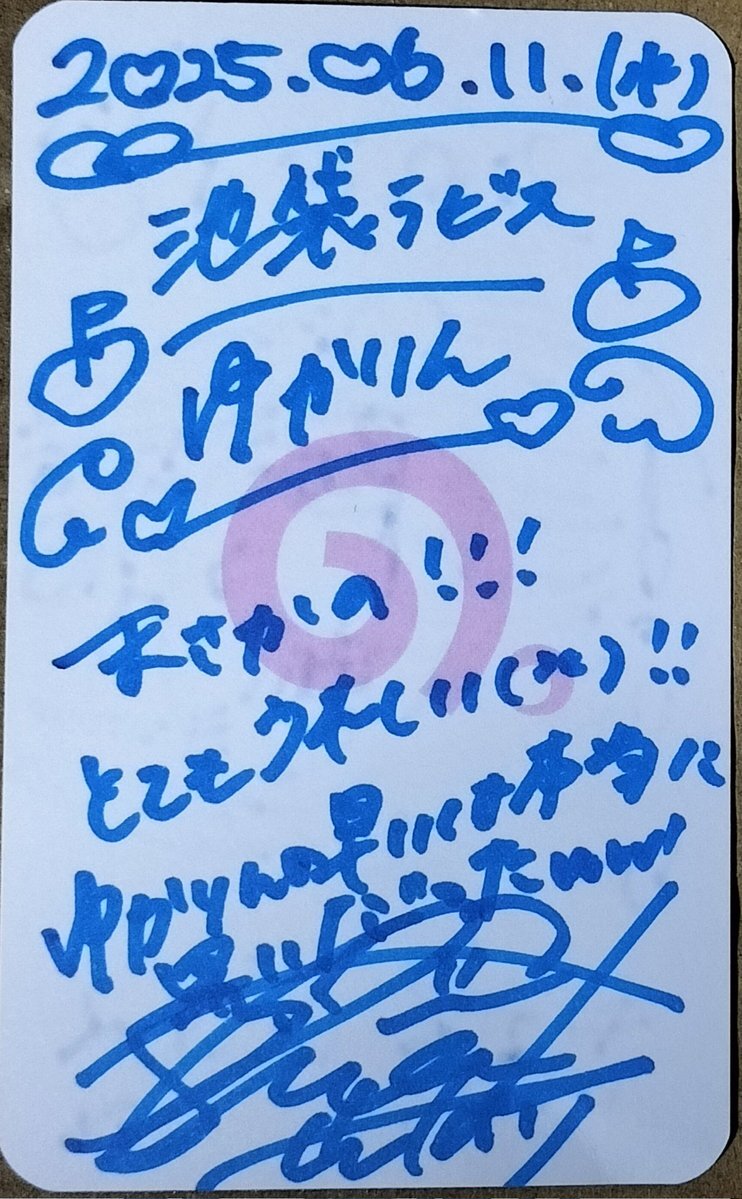 2025.06.11.(水)
池袋ラビス
ゆかりん
まさかの!!!
とてもうれしい(笑)!!
ゆかりんの早いくは本当に
早いくだった